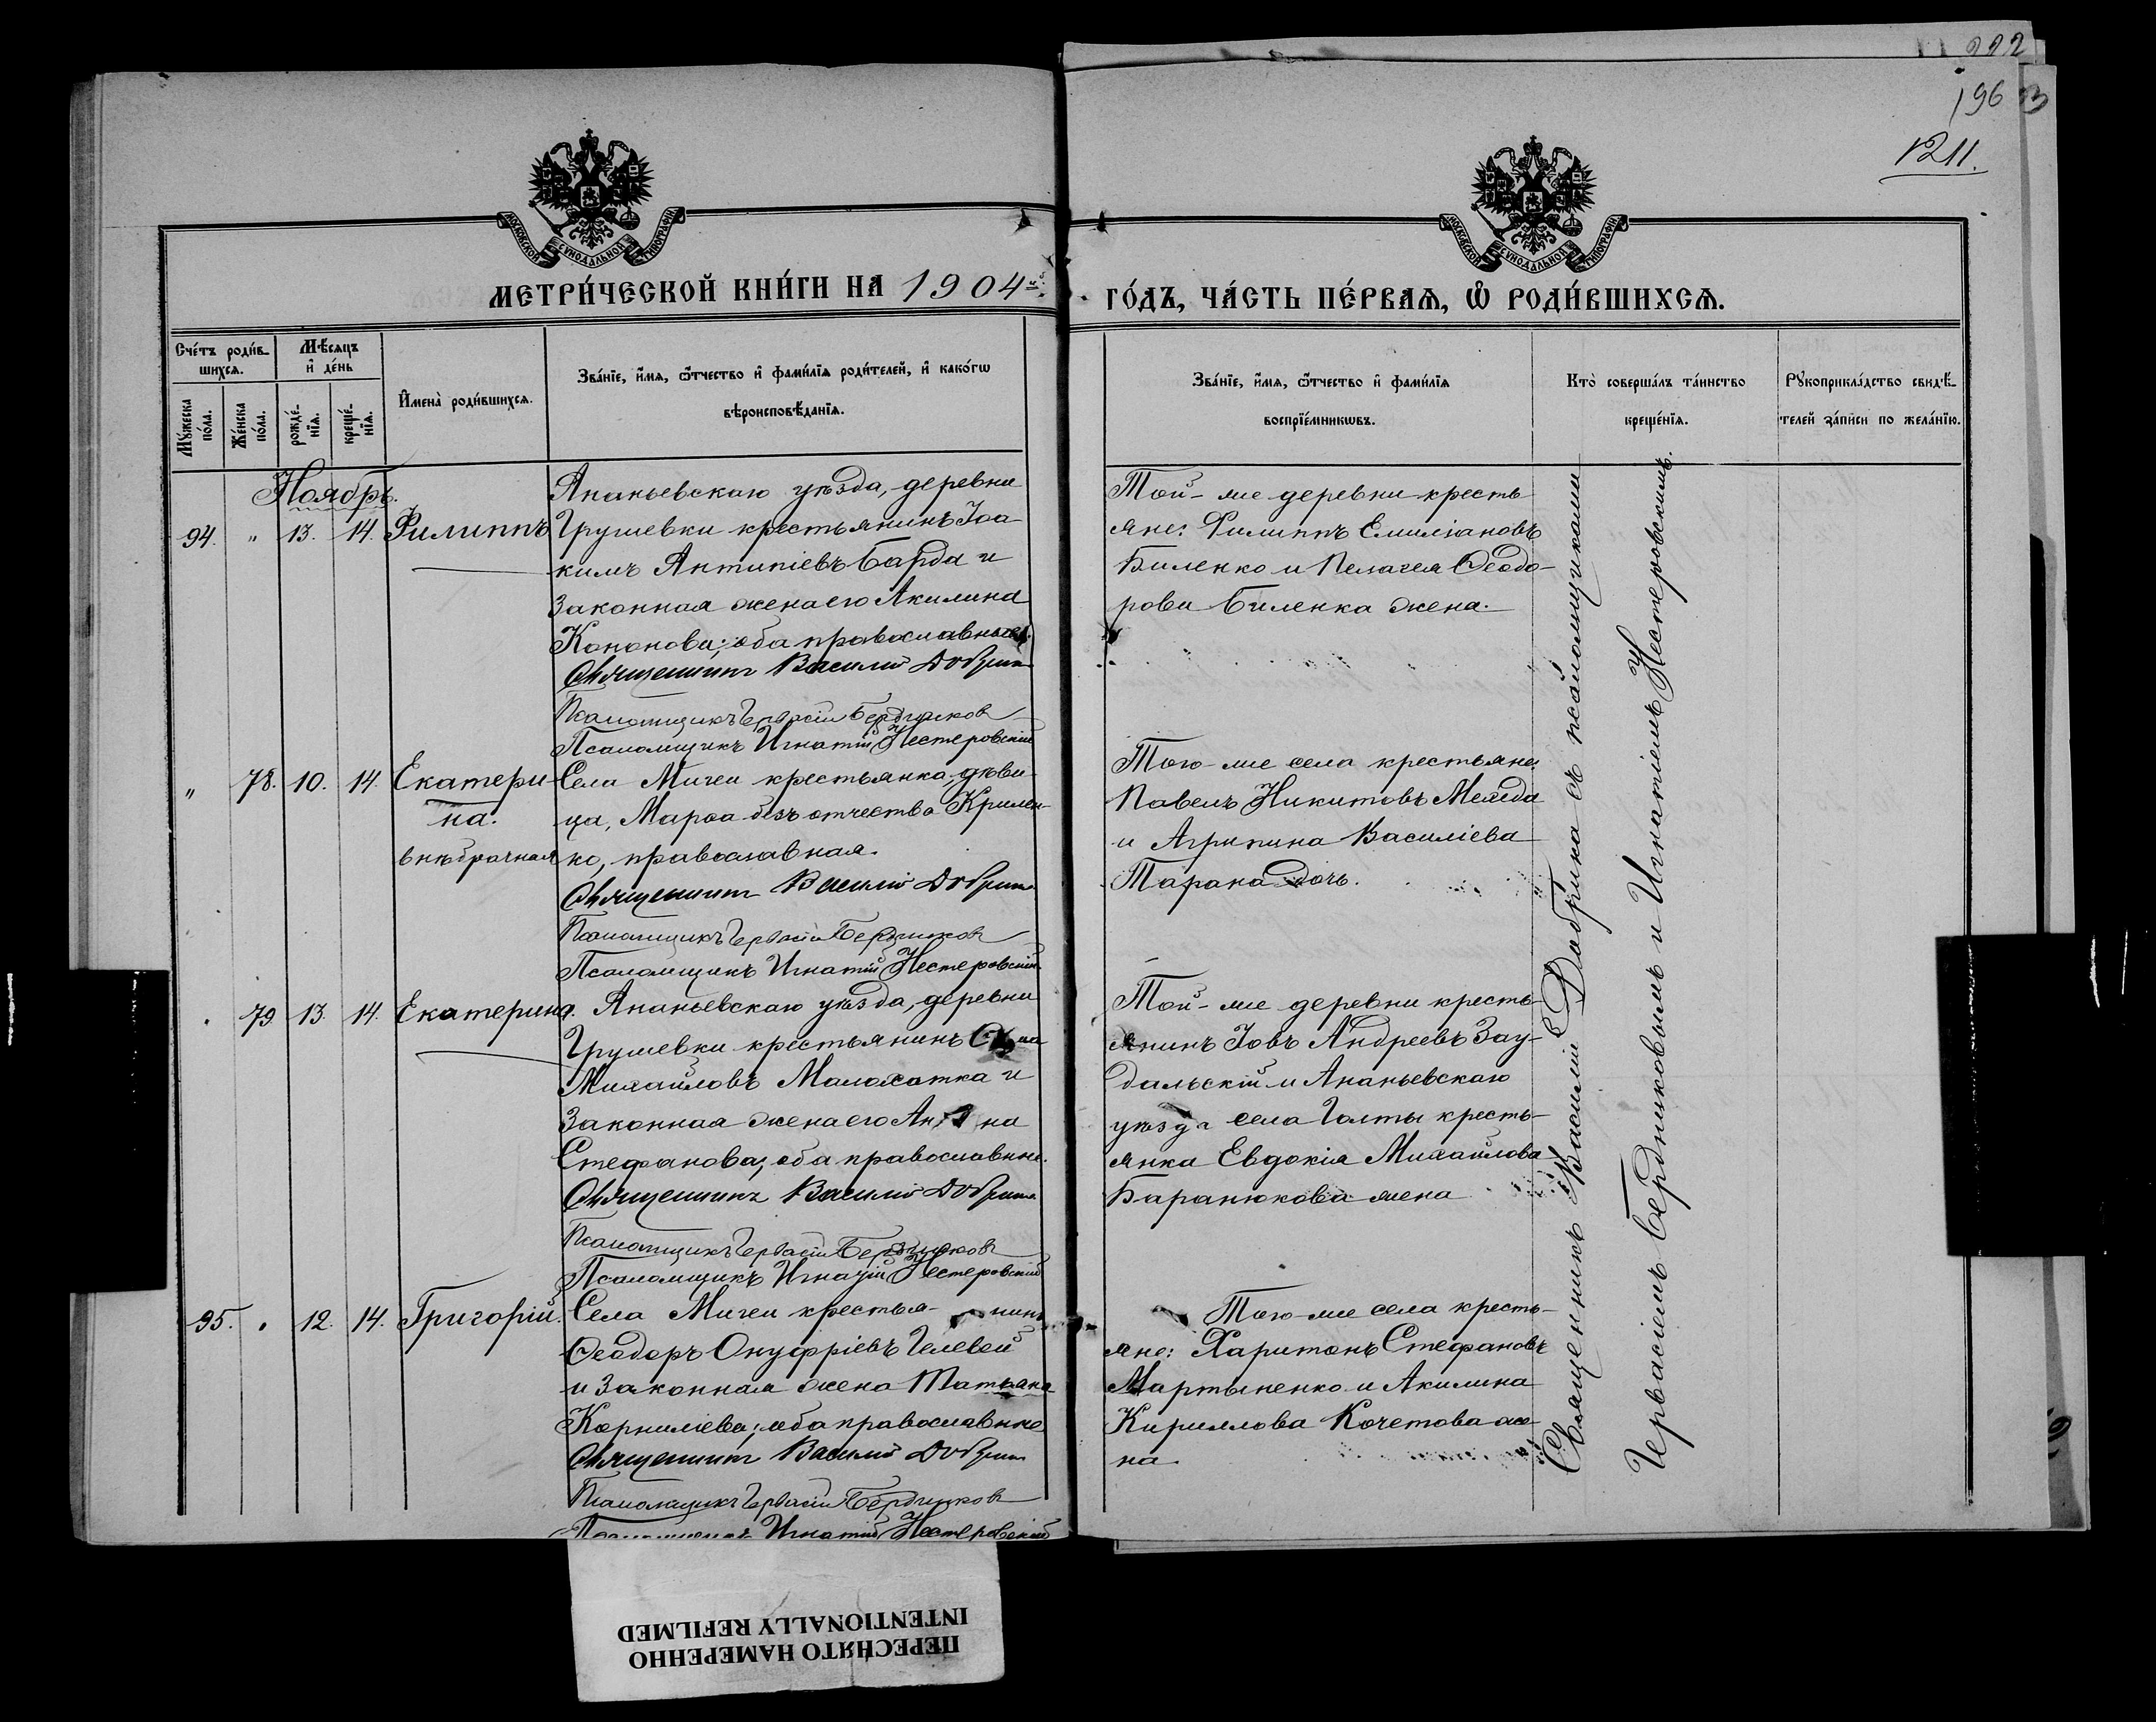 222
196
1211.
МОСКОВСКОЙ СѴНОДАЛЬНОЙ ТИПОГРАФІИ
МОСКОВСКОЙ СѴНОДАЛЬНОЙ ТИПОГРАФІИ
МЕТРИ́ЧЕСКОЙ КНИ́ГИ НА 1904й
ГО́ДЪ, ЧА́СТЬ ПЕ́РВАѦ, Ѡ҆ РОДИ́ВШИХСѦ.
Сче́тъ роди́в-
шихсѧ.
Мѣ́сяцъ
и҆ де́нь
Мꙋ́жеска
по́ла.
Же́нска
по́ла.
рожде́-
нїѧ.
креще́-
нїѧ.
И҆мена̀ роди́вшихсѧ.
Зва́нїе, и҆́мѧ, ѻ҆́тчество и҆ фами́лїѧ роди́телей, и҆ како́гѡ
вѣроисповѣ́данїѧ.
Зва́нїе, и҆́мѧ, ѻ҆́тчество и҆ фами́лїѧ
воспрїе́мникѡвъ.
Кто̀ соверша́лъ та́инство
креще́нїѧ.
Рꙋкоприкла́дство свидѣ́-
телей за́писи по жела́нїю.
Ноябрь.
94. " 13. 14. Филиппъ
Ананьевскаго уѣзда, деревни
Грушевки крестьянинъ Іоа
кимъ Антипіевъ Барда и
законная жена его Акилина
Кононова; оба православные.
Священникъ Василій Добрин
Псаломщикъ Гервасій Бердников
Псаломщикъ Игнатій Нестеровскій
Той-же деревни кресть-
яне: Филиппъ Емиліановъ
Биленко и Пелагея Ѳеодо-
рова Биленка жена.
" 78. 10. 14. Екатери-
на.
внѣбрачная
Села Мигеи крестьянка, дѣви-
ца, Марѳа безъ отчества Кримен-
ко, православная.
Священникъ Василій Добрин
Псаломщикъ Гервасій Бердников
Псаломщикъ Игнатій Нестеровскій
Того-же села крестьяне:
Павелъ Никитовъ
и Агрипина Василіева
Тарана дочь.
79. 13. 14. Екатерина.
Ананьевскаго уѣзда, деревни
Грушевки крестьянинъ
Михайловъ Малохатка и
законная жена его
Стефанова; оба православные.
Священникъ Василій Добрин
Псаломщикъ Гервасій Бердников
Псаломщикъ Игнатій Нестеровскій
Той-же деревни кресть-
янинъ Іовъ Андреевъ Зау-
дальскій и Ананьевскаго
уѣзда села Голты кресть-
янка Евдокія Михайлова
Баранюкова жена
95. " 12. 14. Григорій.
Села Мигеи крестья-нинъ
Ѳеодоръ Онуфріевъ Гелевей
и законная жена Татьяна
Корниліева; оба православные
Священникъ Василій Добрин
Псаломщикъ Гервасій Бердников
Псаломщикъ Игнатій Нестеровскій
Того-же села кресть-
яне: Харитонъ Стефановъ
Мартыненко и Акилина
Кириллова Кочетова же-
на.
Священникъ Василій Добрика съ псаломщиками
Гервасіемъ Бердниковымъ и Игнатіемъ Нестеровскимъ.
ПЕРЕСНЯТО НАМЕРЕННО
INTENTIONALLY REFILMED